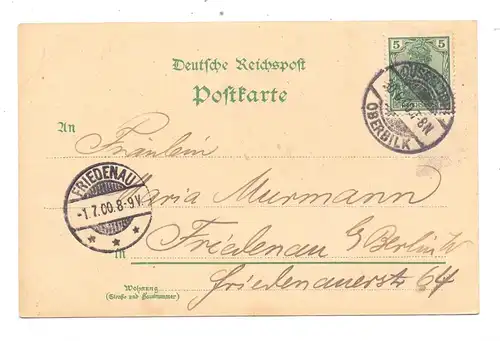 5 5
Deutsche Reichspost
Postkarte
DÜSSELDORF
OBERBILK
An
Fräulein
Maria Murmann
FRIEDENAU
-1.7.00.8-9V.
in Friedenau b/Berlin W
Friedenauerstr 64
Wohnung
(Straße und Hausnummer)